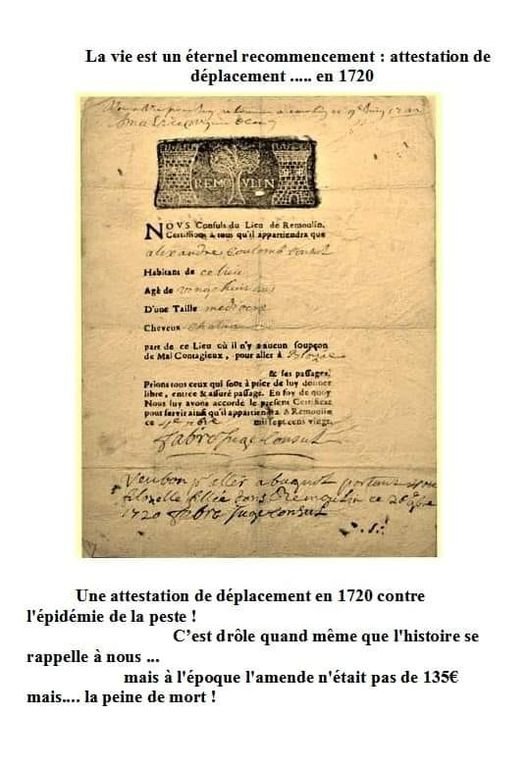 La vie est un éternel recommencement : attestation de
déplacement ..... en 1720
REMOVLIN
NOVS Consuls du Lieu de Remoulin,
Certifions à tous qu'il appartiendra que
alexandre coulomb consul
Habitans de ce lieu
Agé de vingt huit ans
D'une Taille mediocre
Cheveux
part de ce Lieu où il n'y a aucun soupçon
de Mal Contagieux, pour aller à Blozac
& ses passages,
Prions tous ceux qui sont à prier de luy donner
libre, entrée & assuré passage. En foy de quoy
Nous luy avons accordé le present Certificat
pour servir ainsi qu'il appartiendra à Remoulin
ce 4e nbre mil sept cens vingt.
fabre juge Consul
Veu bon pr aller a
Remoulin ce
1720 fabre juge Consul
Une attestation de déplacement en 1720 contre
l'épidémie de la peste !
C’est drôle quand même que l'histoire se
rappelle à nous ...
mais à l'époque l'amende n'était pas de 135€
mais.... la peine de mort !